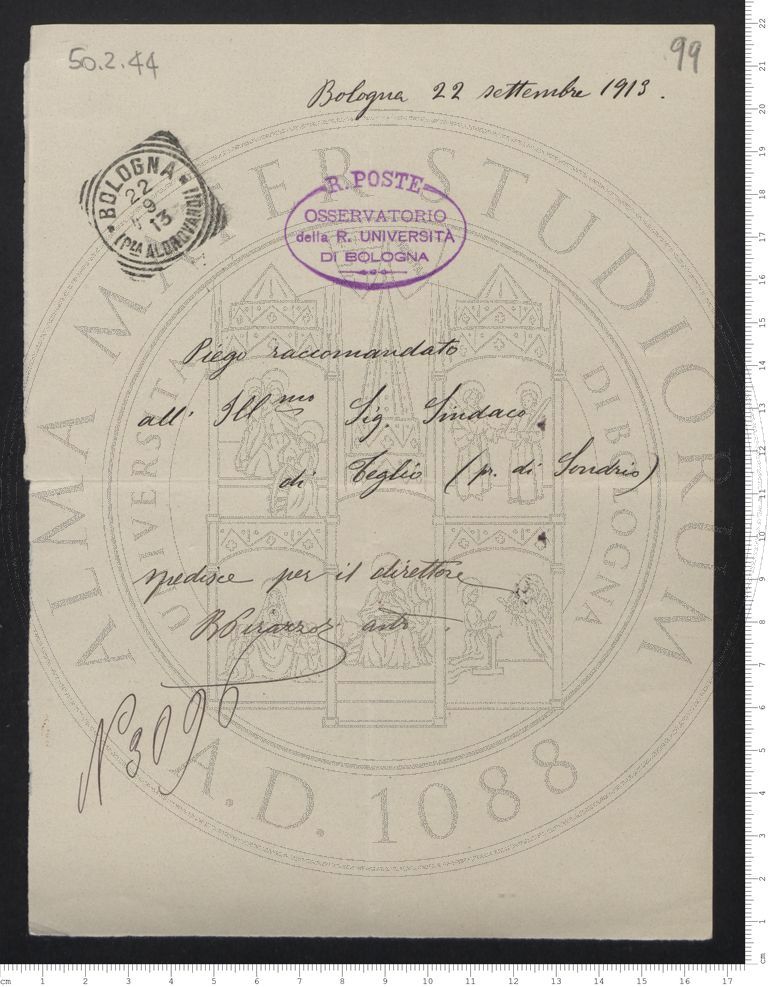 50.2.44
99
Bologna 22 settembre 1913.
BOLOGNA
22
9
13
(PZA ALDROVANDI)
R. POSTE
OSSERVATORIO
della R. UNIVERSITÀ
DI BOLOGNA
Piego raccomandato
all' Ill.mo Sig. Sindaco
di Teglio (pr. di Sondrio)
spedisce per il direttore
N 3096
ALMA MATER STUDIORUM
UNIVERSITA DI BOLOGNA
A.D. 1088
cm 1 2 3 4 5 6 7 8 9 10 11 12 13 14 15 16 17
cm 1 2 3 4 5 6 7 8 9 10 11 12 13 14 15 16 17 18 19 20 21 22